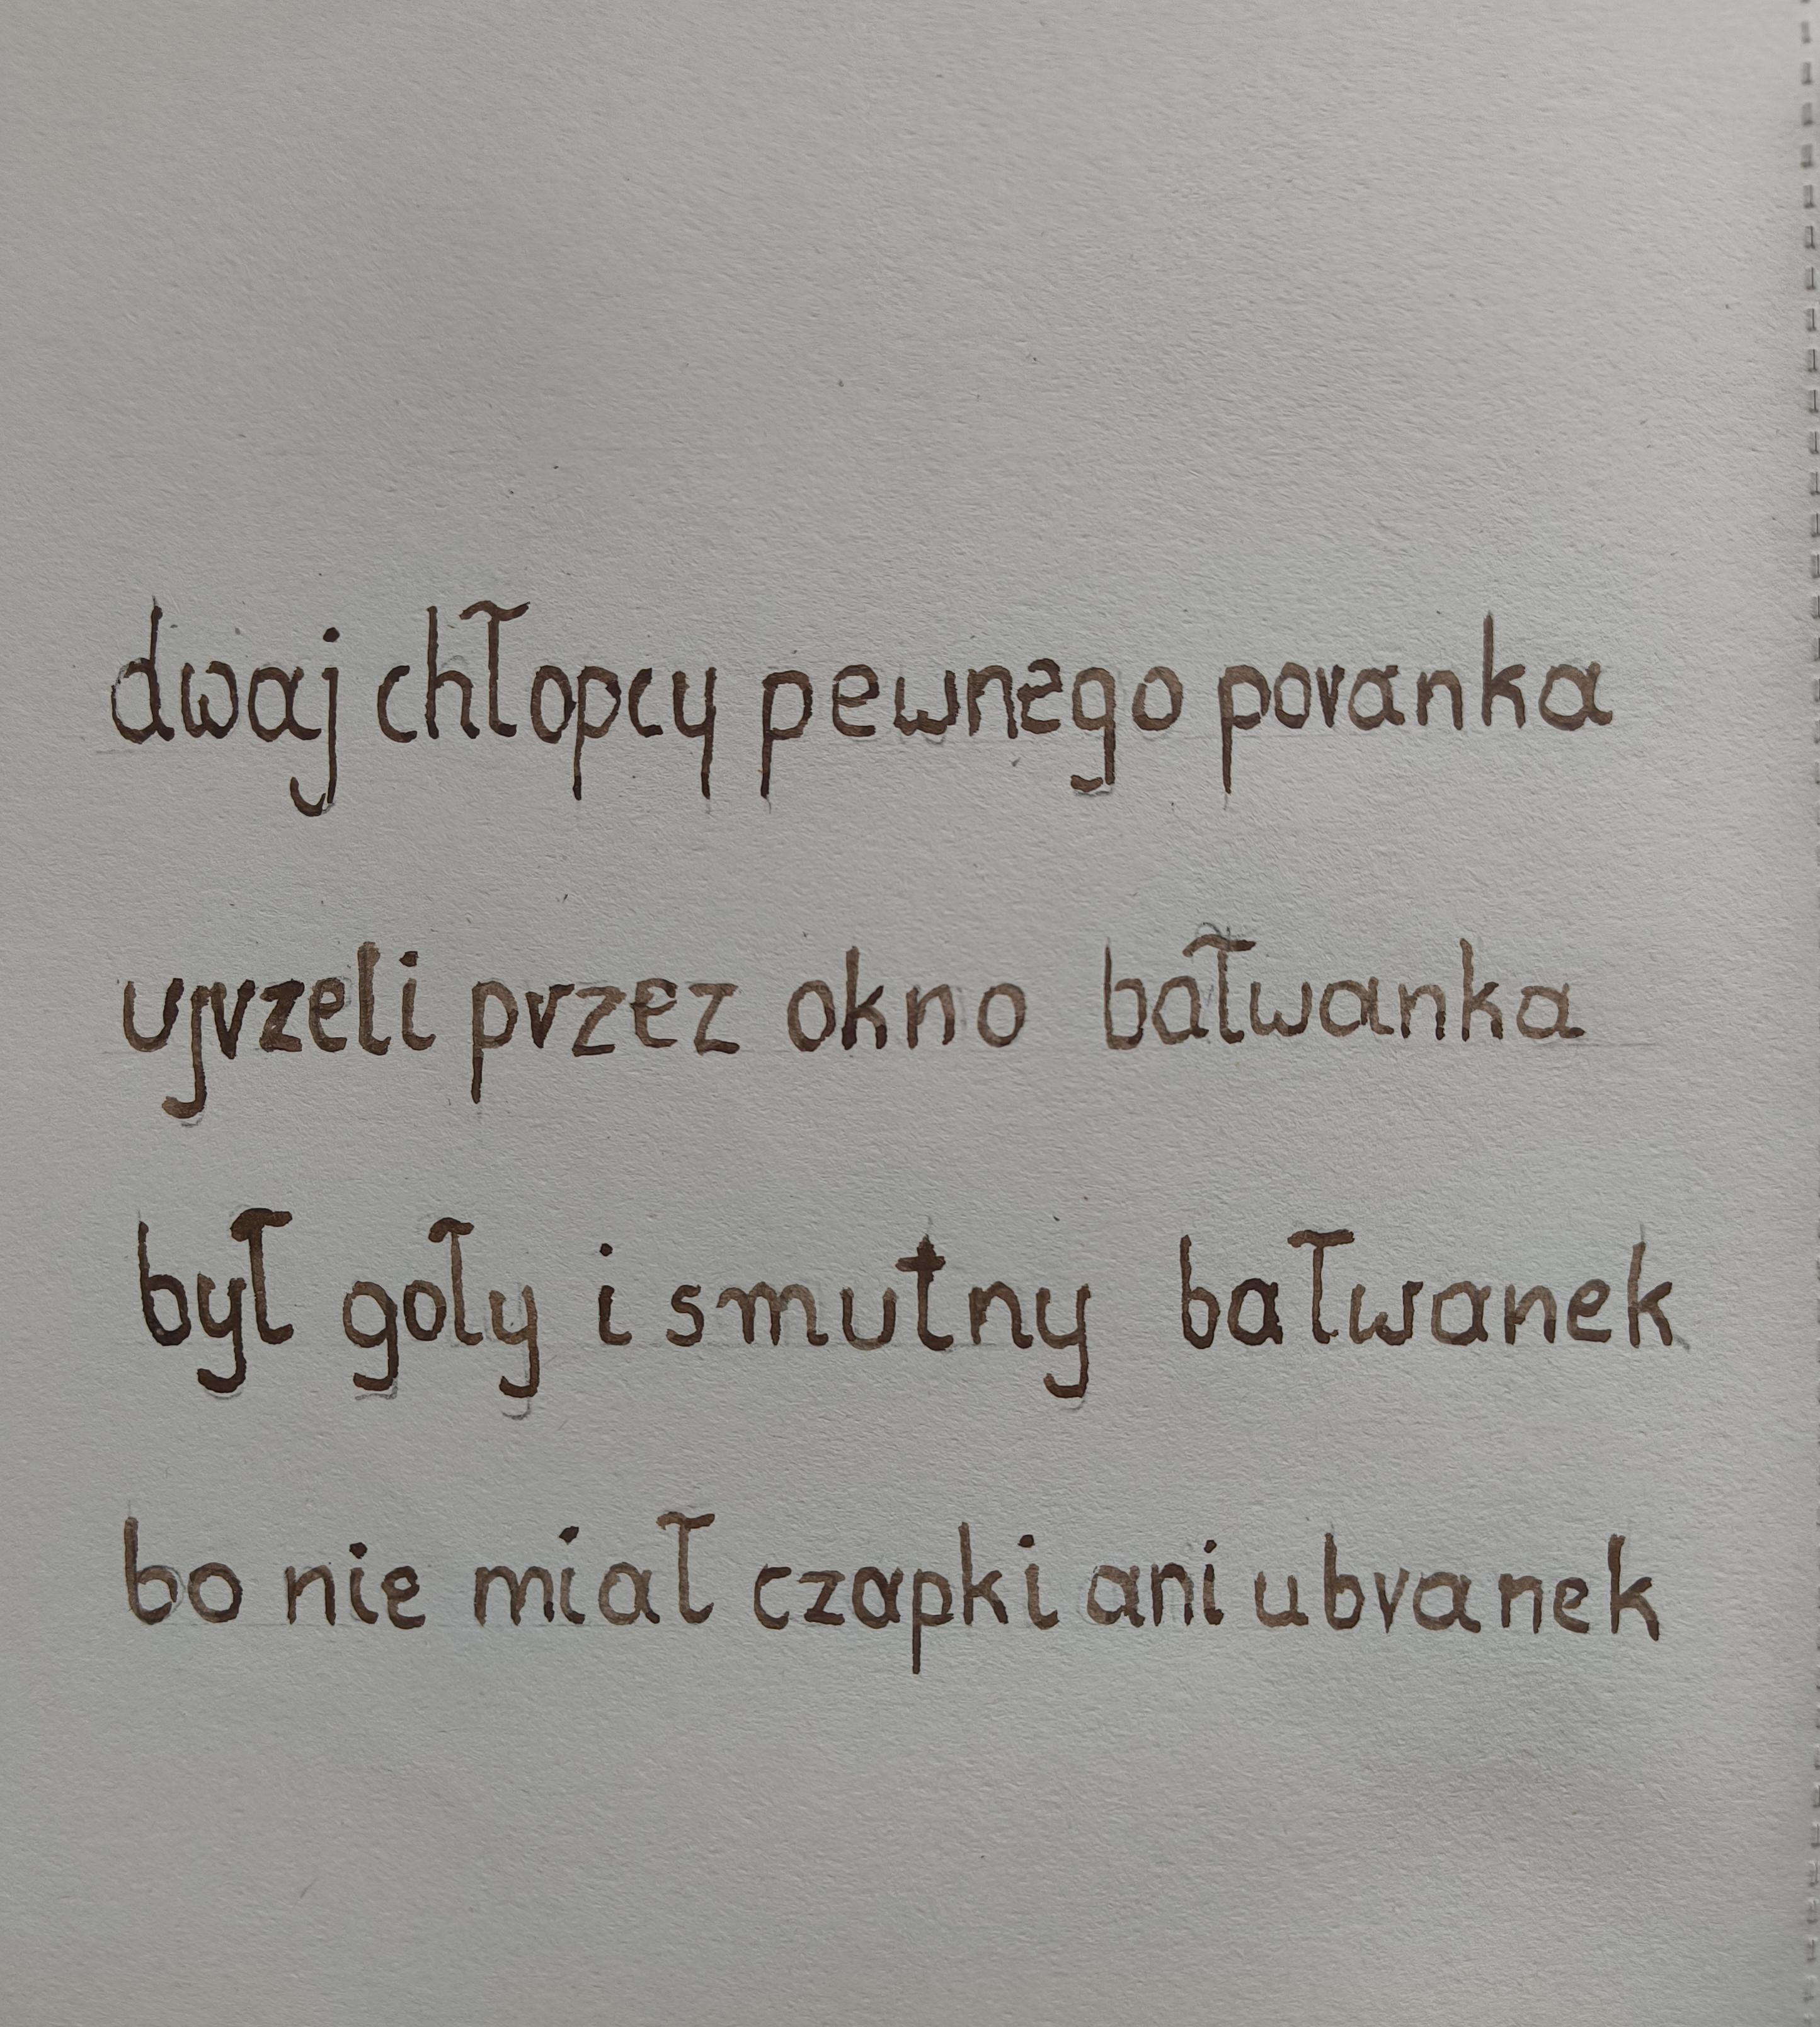 dwaj chłopcy pewnego poranka
ujrzeli przez okno bałwanka
był goły i smutny bałwanek
bo nie miał czapki ani ubranek